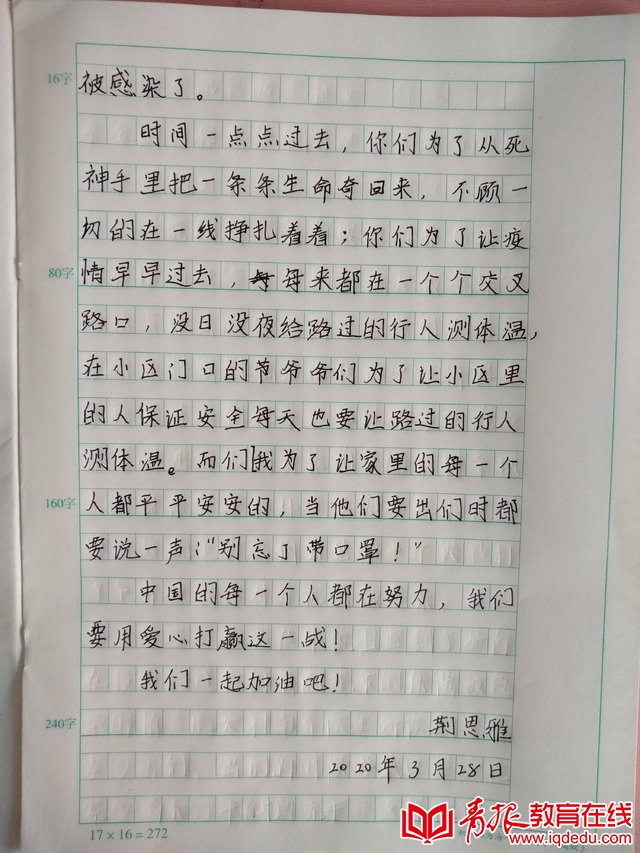 16字
被感染了。
时间一点点过去，你们为了从死
神手里把一条条生命夺回来，不顾一
切的在一线挣扎着着；你们为了让疫
80字
情早早过去，每来都在一个个交叉
路口，没日没夜给路过的行人测体温，
在小区门口的爷爷们为了让小区里
的人保证安全每天也要让路过的行人
测体温。而们我为了让家里的每一个
160字
人都平平安安的，当他们要出们时都
要说一声：“别忘了带口罩！”
中国的每一个人都在努力，我们
要用爱心打赢这一战！
我们一起加油吧！
240字
荆思雅
2020年3月28日
17×16=272
青报教育在线
www.iqdedu.com